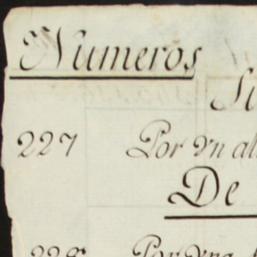 Numeros
Si
227 Por Vn al
De
228 Por Vna